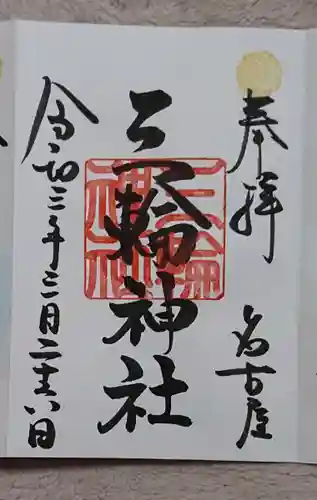 奉拝
名古屋
三輪神社
三輪神社
令和三年三月二十六日